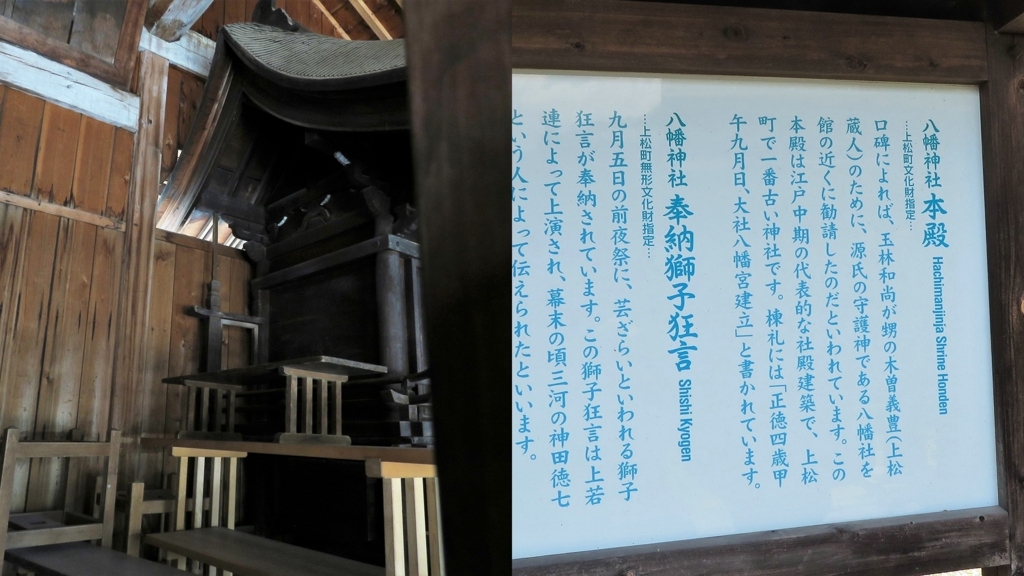 八幡神社 本殿 Hachimanjinja Shrine Honden
…上松町文化財指定…
口碑によれば、玉林和尚が甥の木曽義豊（上松
蔵人）のために、源氏の守護神である八幡社を
館の近くに勧請したのだといわれています。この
本殿は江戸中期の代表的な社殿建築で、上松
町で一番古い神社です。棟札には「正徳四歳甲
午九月日、大社八幡宮建立」と書かれています。
八幡神社 奉納獅子狂言 Shishi Kyogen
…上松町無形文化財指定…
九月五日の前夜祭に、芸ざらいといわれる獅子
狂言が奉納されています。この獅子狂言は上若
連によって上演され、幕末の頃三河の神田徳七
という人によって伝えられたといいます。